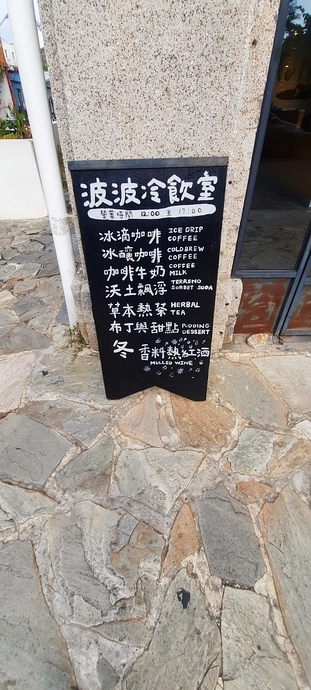 波波冷飲室
營業時間 12:00 至 17:00
冰滴咖啡 ICE DRIP COFFEE
冰釀咖啡 COLDBREW COFFEE
咖啡牛奶 COFFEE MILK
沃土飄浮 TERRENO SORBET SODA
草本熱茶 HERBAL TEA
布丁與甜點 PUDDING DESSERT
冬 香料熱紅酒
MULLED WINE